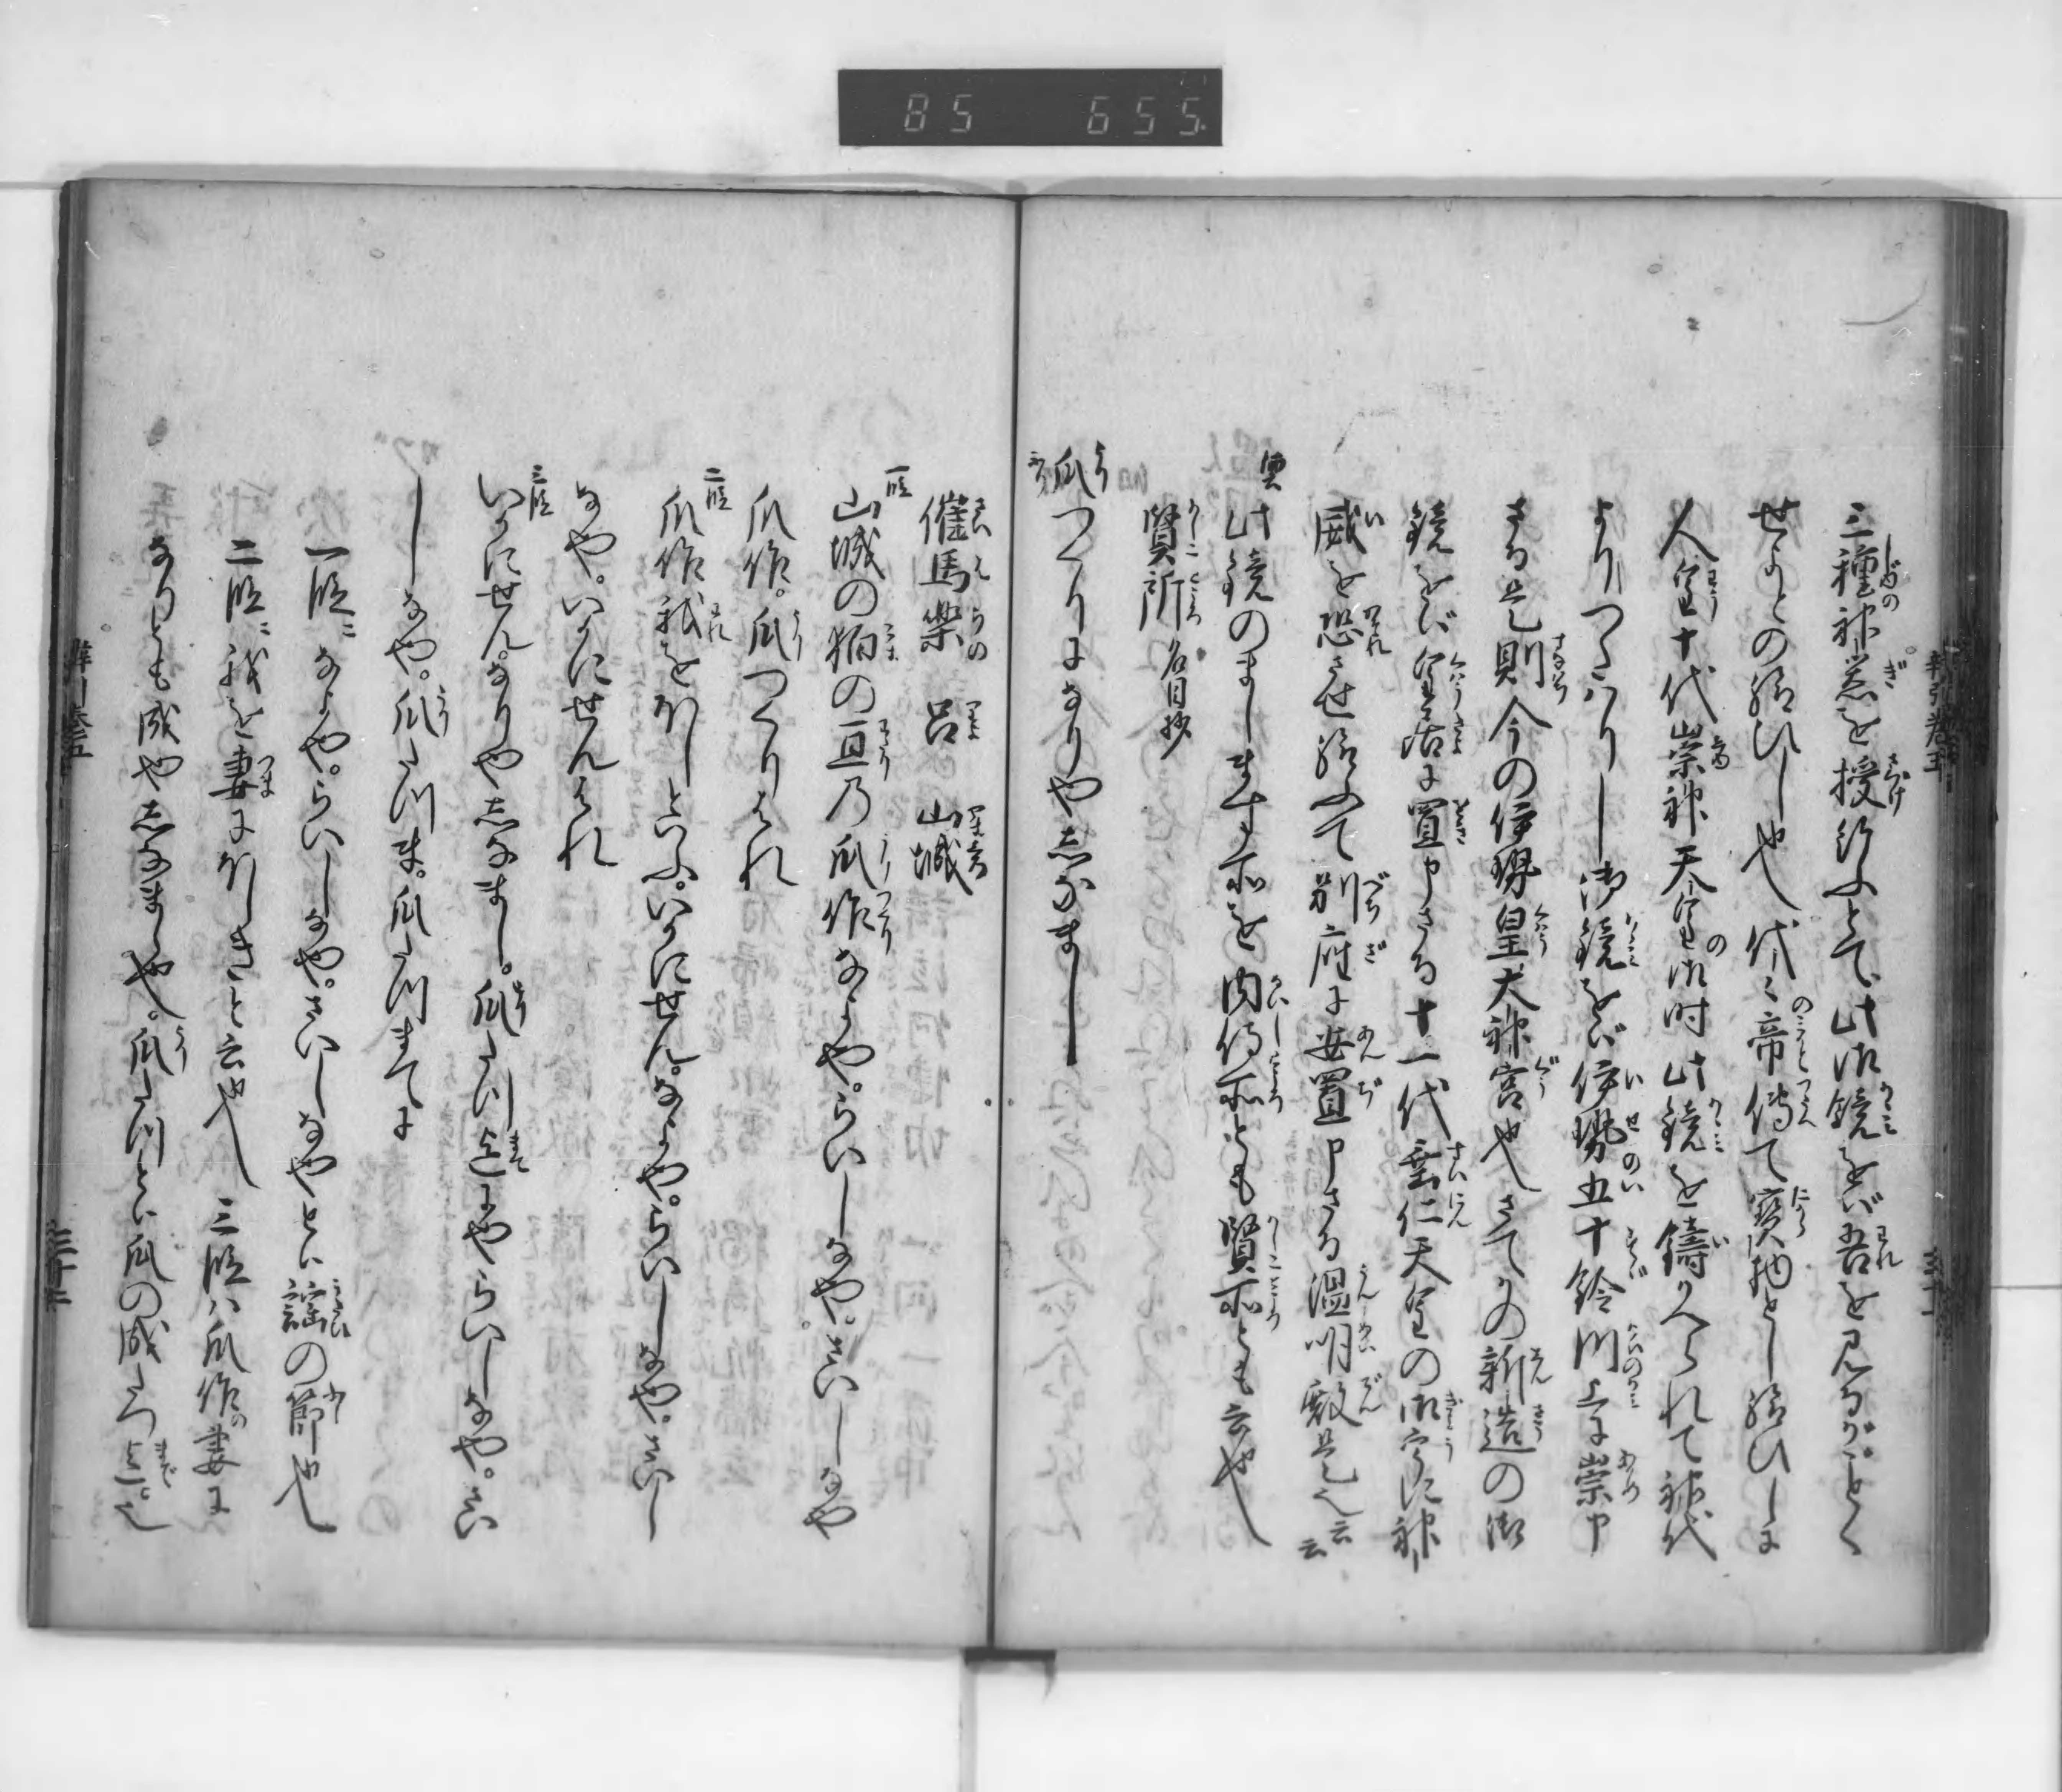 85 655
三種神器を授給ふとて此御鏡をば吾を見るがごとく
せよとの給ひし也代々帝傳て寶物とし給ひしに
人皇十代崇神天皇の御時此鏡を鑄かへられて神代
よりつたはりし御鏡をば伊勢五十鈴川上に崇申
さる是則今の伊勢皇大神宮也さてかの新造の御
鏡をば皇居に置申さる十一代垂仁天皇の御宇に神
威を恐させ給ふて別座に安置申さる温明殿是也云云
此鏡のまします所を内侍所とも賢所とも云也
賢所 名目抄
瓜つくりになりやしなまし
催馬樂 呂 山城
一段 山城の狛の亘乃瓜作なよや。らいしなや。さいしなや
瓜作。瓜つくりはれ
二段 瓜作我をほしといふ。いかにせん。なよや。らいしなや。さいし
なや。いかにせんはれ
三段 いかにせん。なりやしなまし。瓜たつ迄にやらいしなや。さい
しなや。瓜たつま。瓜たつまてに
一段ニなよや。らいしなや。さいしなやとい謡の節也
二段ニ我を妻にほしきと云也 三段ハ瓜作の妻に
なりとも成やしなましや。瓜たつとい瓜の成たつ迄。也